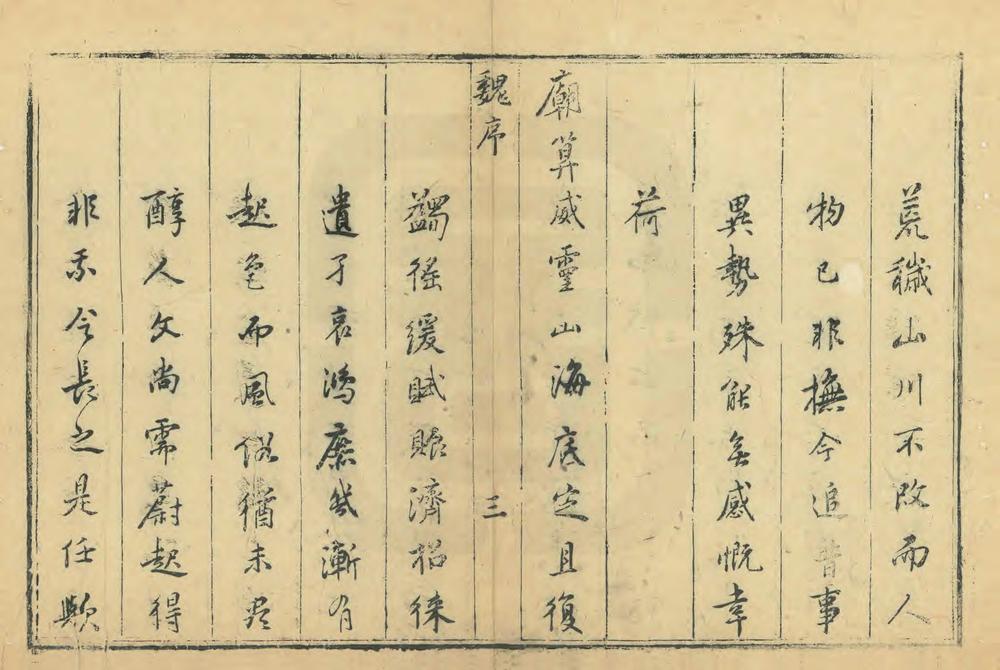 荒穢山川不改而人
物已非撫今追昔事
異勢殊能無感慨幸
荷
廟算威靈山海底定且復
魏序
三
蠲徭緩賦賑濟招徠
遺孑哀鴻庶幾漸有
起色而風俗猶未盡
醇人文尚需蔚起得
非系令長之是任歟